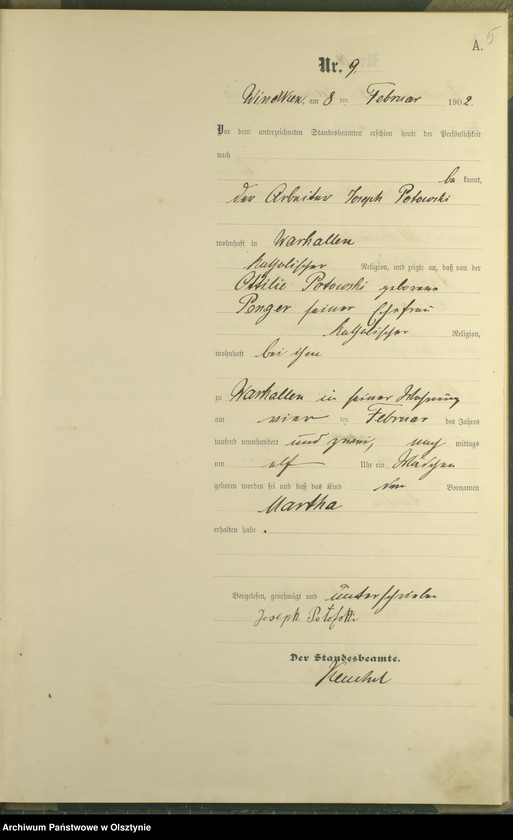 A. 5
Nr. 9.
am 8 ten Februar 1902.
Vor dem unterzeichneten Standesbeamten erschien heute der Persönlichkeit
nach
be kannt,
der Arbeiter Joseph Potowski
wohnhaft in Warkallen
katholischer Religion, und zeigte an, daß von der
Ottilie Potowski geborene
Penger seiner Ehefrau
katholischer Religion,
wohnhaft bei ihm
zu Warkallen in seiner Wohnung
am vier ten Februar des Jahres
tausend neunhundert und zwei, nach mittags
um elf Uhr ein Mädchen
geboren worden sei und daß das Kind den Vornamen
Martha
erhalten habe.
Vorgelesen, genehmigt und unterschrieben
Joseph
Der Standesbeamte.
Archiwum Państwowe w Olsztynie